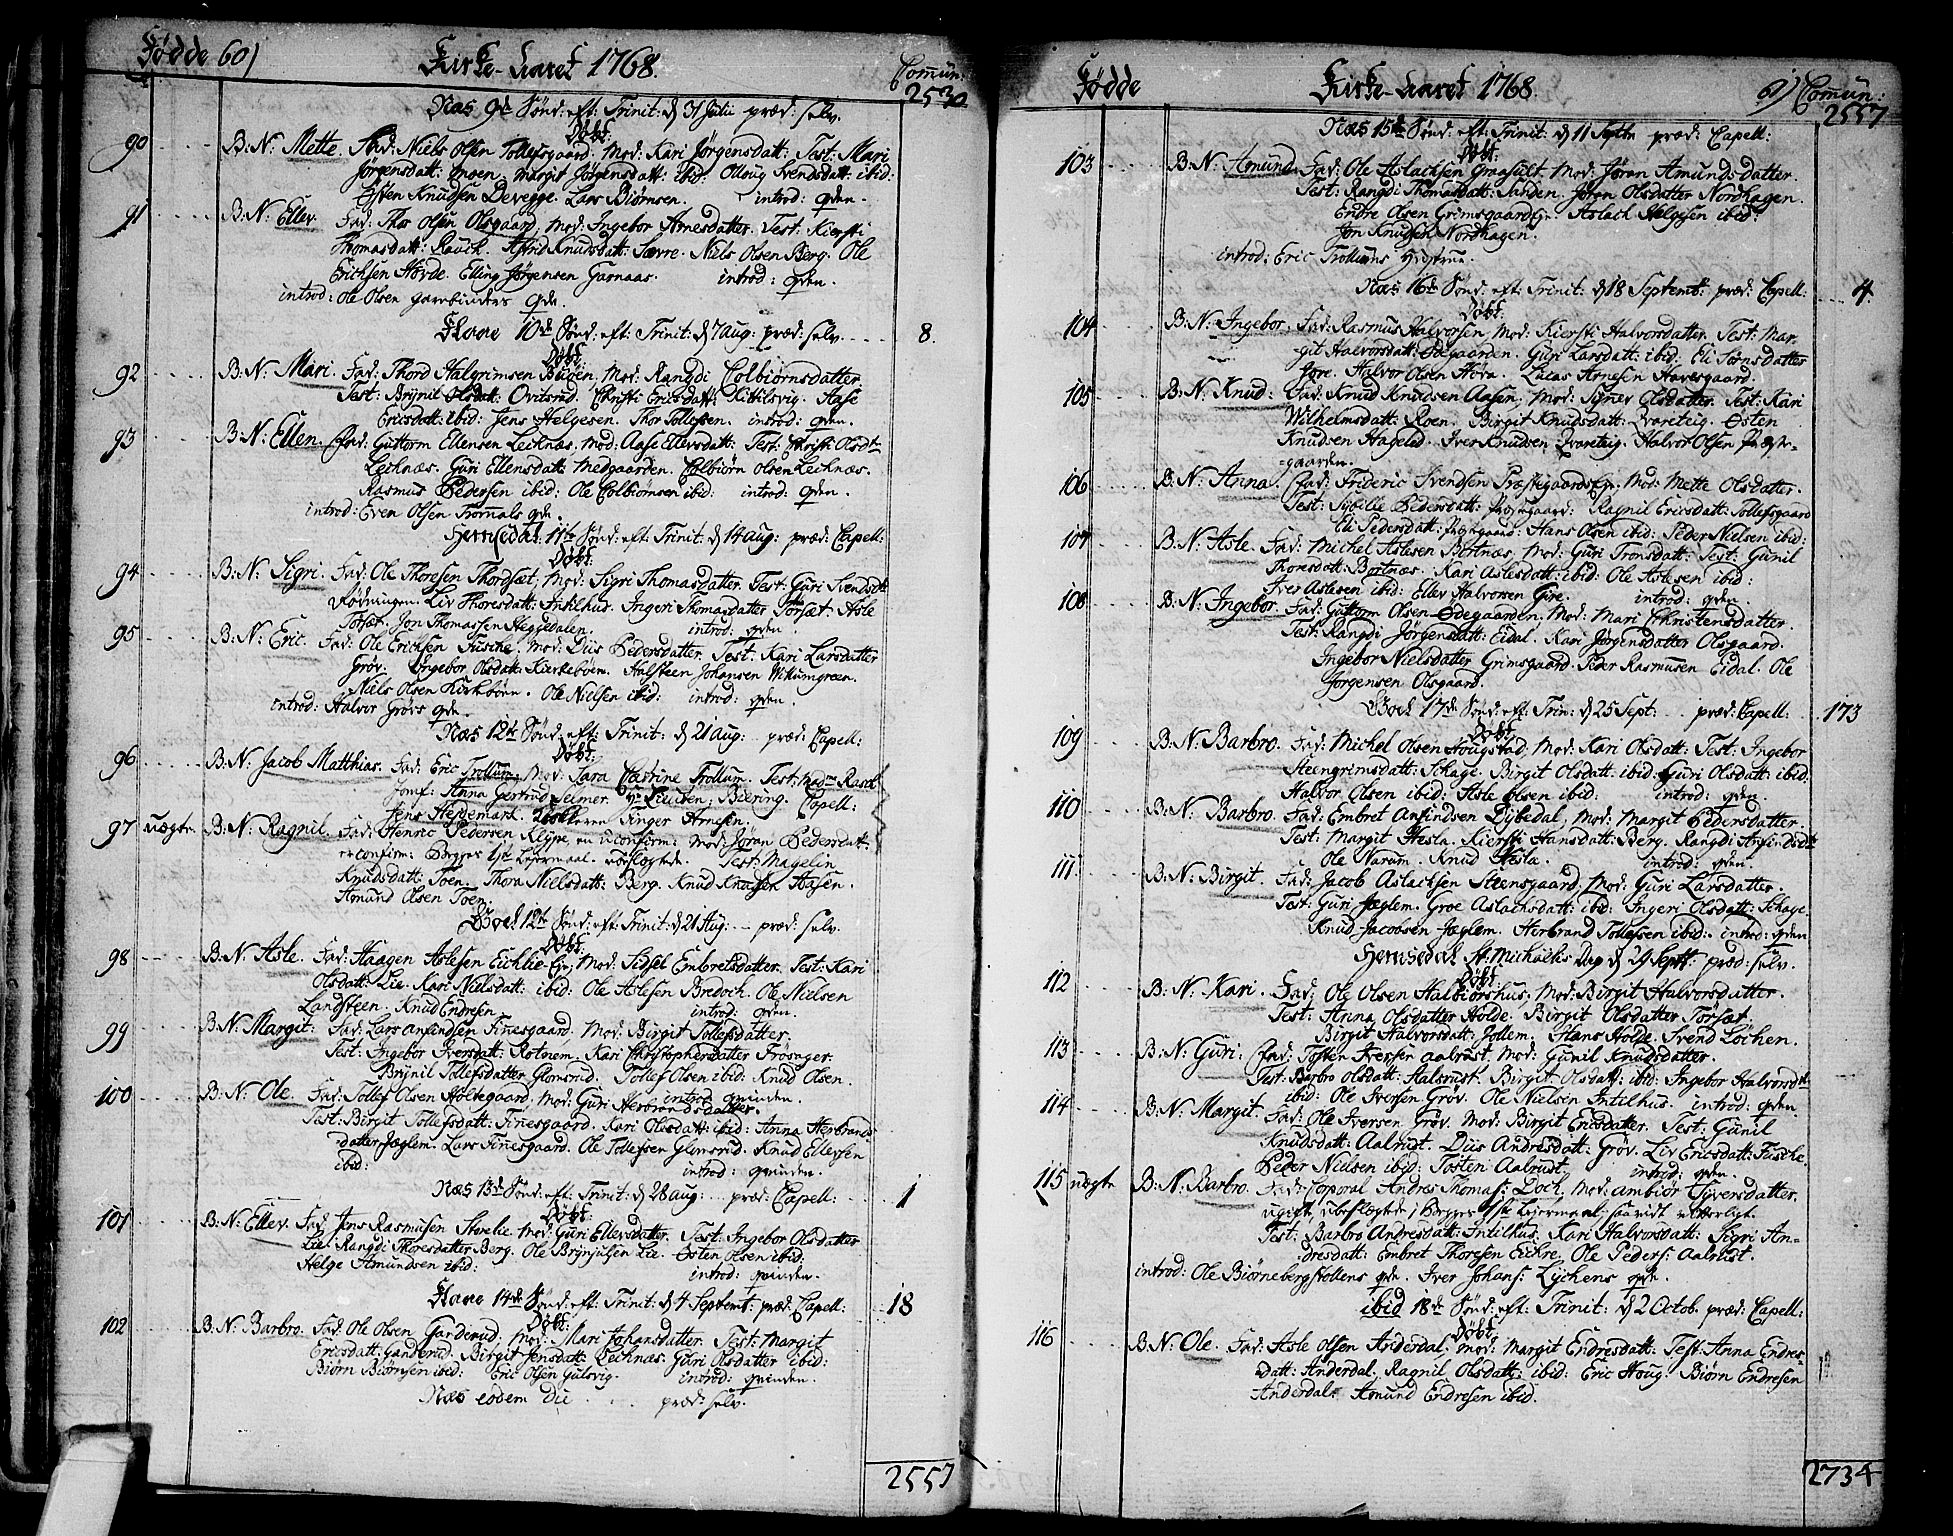 Fødde 60) Kirke-Aaret 1768. Comun:
2530
Næs 9de Sønd: eft: Trinit: d 31 Julii præd: selv.
Døbt:
90 B: N: Mette. Fad: Niels Olsen Tollefsgaard. Mod: Kari Jørgensdatt: Test: Mari
Jørgensdatt: Moen. Margit Jørgensdatt: ibid: Olloug Svendsdatt: ibid:
Esten Knudsen Devegge. Lars Biørnsen. introd: qvden.
91 B: N: Ellev. Fad: Thor Olsen Olsgaard, Mod: Ingebor Arnesdatter. Test: Kiersti
Thomasdatt: Rauck. Astrid Knudsdatt: Sævre. Niels Olsen Berg. Ole
Erichsen Hovde. Elling Jørgensen Garnaas. introd: qvden.
introd: Ole Olsen Garnbinders qvden.
Flaae 10de Sønd: eft: Trinit: d 7 Aug: præd: selv. 8.
Døbt:
92 B: N: Mari. Fad: Thord Halgrimsen Bugen, Mod: Rangdi Colbiørnsdatter
Test: Brynil Ovitsrud. Christi Ericsdatt: Kittilsvig. Aase
Ericsdatt: ibid: Jens Helgesen. Thor Tollefsen. introd: qvden.
93 B: N: Ellen. Fad: Guttorm Ellensen Lecknæs. Mod: Aase Ellevsdatt: Test: Christi Olsdtr
Lecknæs. Guri Ellensdatt: Medgaarden. Colbiørn Olsen Lecknæs.
Rasmus Pedersen ibid: Ole Colbiørnsen ibid: introd: qvden.
introd: Even Olsen Trommals qvden.
Hemsedal 11te Sønd: eft: Trinit: d 14 Aug: præd: Capell:
Døbt:
94 B: N: Sigri. Fad: Ole Thoresen Thordsæt, Mod: Sigri Thomasdatter. Test: Guri Svendsdtr
Rødningen. Liv Thoresdatt: Intilhus. Ingeri Thomasdatter Torsæt. Asle
Torsæt. Jon Thomassen Heggedalen. introd: qvden.
95 B: N: Eric. Fad: Ole Erichsen Fusche. Mod: Diis Pedersdatter. Test: Kari Larsdatter
Grøv. Ingebor Olsdatt: Kierkebøen. Halsteen Johansen Wikumgreen.
Niels Olsen Kirkbøen. Ole Nielsen ibid: introd: qvden.
introd: Halvor Grøvs qvden.
Næs 12te Sønd: eft: Trinit: d 21 Aug: præd: Capell:
Døbt:
96 B: N: Jacob Matthias. Fad: Eric Trollum, Mod: Sara Cathrine Trollum. Test: Madme Rasch
Jomf: Anna Gertrud Selmer. Hr Lieuten: Biering. Capell:
Jens Heydemark. Inger Arnesen.
97 uægte. B: N: Ragnil. Fad: Henric Pedersen Kleype, en uconfirm: Mod: Jøran Pedersdatt:
confirm: Begges 1ste Lejermaal. ubeslegtede. Test: Magelin
Knudsdatt: Toen. Thora Nielsdatt: Berg. Knud Knudsen Aasen.
Amund Olsen Toen.
Goel 12te Sønd: eft: Trinit: d 21 Aug: præd: selv.
Døbt:
98 B: N: Asle. Fad: Haagen Aslesen Eichlie-Eje; Mod: Sidsel Embretsdatter. Test: Kari
Olsdatt: Lie. Kari Nielsdatt: ibid: Ole Aslesen Bredoch. Ole Nielsen
Landsteen. Knud Endresen. introd: qvden.
99 B: N: Margit: Fad: Lars Anfindsen Finesgaard, Mod: Birgit Tollefsdatter.
Test: Ingebor Iversdatt: Rotnem. Kari Christophersdatter Frøsager.
Brynil Tollefsdatter Glomsrud. Tollef Olsen ibid: Knud Olsen.
introd: qvinden.
100 B: N: Ole. Fad: Tollef Olsen Holtegaard. Mod: Guri Herbrandsdatter.
Test: Birgit Tollefsdatt: Finesgaard. Kari Olsdatt: ibid: Anna Herbrands-
datter Jæglem. Lars Finesgaard. Ole Tollefsen Glomsrud. Knud Ellevsen
ibid: introd: qvinden.
Næs 13de Sønd: eft: Trinit: d 28 Aug: præd: Capell: 1
Døbt:
101 B: N: Ellev. Fad: Jens Rasmusen Thoelie. Mod: Guri Ellevsdatter. Test: Ingebor Olsdatter
Lie. Rangdi Thoresdatter Berg. Ole Brynjulsen Lie. Østen Olsen ibid:
Helge Amundsen ibid: introd: qvinden.
Flaae 14de Sønd: eft: Trinit: d 4 Septemt: præd: Capell: 18
Døbt:
102 B: N: Barbro. Fad: Ole Olsen Garderud. Mod: Mari Johansdatter. Test: Margit
Ericsdatt: Ganderud. Birgit Jensdatt: Lecknæs. Guri Olsdatter ibid:
Biørn Biørnsen ibid: Eric Olsen Gulsvig. introd: qvinden.
Næs eodem Die præd: selv.
2557
Fødde Kirke-Aaret 1768. 61) Comun:
2557
Næs 15de Sønd: eft: Trinit: d 11 Septbr præd: Capell:
Døbt:
103 B: N: Amund. Fad: Ole Aslachsen Graasult. Mod: Jøran Amundsdatter.
Test: Rangdi Thomasdatt: Sanden. Jøran Olsdatter Nordhagen.
Endre Olsen Grimsgaards Eje. Aslach Helgesen ibid:
Jon Knudsen Nordhagen.
introd: Eric Trollums Hustrue.
Næs 16de Sønd: eft: Trinit: d 18 Septembr: præd: Capell: 4
Døbt:
104 B: N: Ingebor. Fad: Rasmus Halvorsen, Mod: Kiersti Halvorsdatter. Test: Mar-
git Halvorsdatt: Ødegaarden. Guri Larsdatt: ibid: Eli Tørnsdatter
Gire. Halvor Olsen Hova. Lucas Arnesen Haversgaard.
105 B: N: Knud: Fad: Knud Knudsen Aasen; Mod: Signer Olsdatter. Test: Kari
Wilhelmsdatt: Roen. Birgit Knudsdatt: Tvareteig. Østen
Knudsen Hageled. Iver Knudsen Tvareteig. Halvor Olsen Præste-
gaarden.
106 B: N: Anna. Fad: Frideric Svendsen Præstegaards Eje. Mod: Mette Olsdatter.
Test: Sybille Pedersdatt: Præstgaard: Ragnil Ericsdatt: Tollefsgaard
Eli Pedersdatt: Præstgaard: Hans Olsen ibid: Peder Nielsen ibid:
107 B: N: Asle. Fad: Michel Aslesen Bortnæs, Mod: Guri Tronsdatt: Test: Gunil
Thonsdatt: Bortnæs. Kari Aslesdatt: ibid: Ole Aslesen ibid:
Iver Aslesen ibid: Ellev Halvorsen Gire. introd: qvden.
108 B: N: Ingebor. Fad: Guttorm Olsen Ødegaarden. Mod: Mari Christensdatter.
Test: Rangdi Jørgensdatt: Eidal. Kari Jørgensdatter Olsgaard.
Ingebor Nielsdatter Grimsgaard. Peder Rasmusen Eidal. Ole
Jørgensen Olsgaard.
Goel 17de Sønd: eft: Trin: d 25 Sept: præd: Capell: 173
Døbt:
109 B: N: Barbro. Fad: Michel Olsen Hougstad, Mod: Kari Olsdatt: Test: Ingebor
Steengrimsdatt: Schage. Birgit Olsdatt: ibid. Guri Olsdatt: ibid.
Halvor Olsen ibid: Asle Olsen ibid: introd: qvden.
110 B: N: Barbro. Fad: Embret Anfindsen Dybedal, Mod: Margit Pedersdatter.
Test: Margit Hesla. Kiersti Hansdatt: Berg. Rangdi Anfindsdtr
Ole Narum. Knud Hesla. introd: qvden.
111 B: N: Birgit. Fad: Jacob Aslachsen Steensgaard, Mod: Guri Larsdatter.
Test: Guri Jæglem. Groe Aslachsdatt: ibid: Ingeri Olsdatt: Schage.
Knud Jacobsen Jæglem. Herbrand Tollefsen ibid: introd: qvden
Hemsedal St. Michaelis Dag d 29 Septt: præd: selv.
Døbt:
112 B: N: Kari. Fad: Ole Olsen Halbiørshus, Mod: Birgit Halvorsdatter.
Test: Anna Olsdatter Holde. Birgit Olsdatter Torsæt.
Birgit Halvorsdatt: Jollem. Hans Holde. Svend Løchen.
113 B: N: Guri. Fad: Tosten Iversen Aalrust. Mod: Gunil Knudsdatter.
Test: Barbro Olsdatt: Aalrust. Birgit Olsdatt: ibid: Ingebor Halvorsdtr
ibid: Ole Iversen Grøv. Ole Nielsen Intilhus. introd: qvden
114 B: N: Margit. Fad: Ole Iversen Grøv. Mod: Birgit Ericsdatter. Test: Gunil
Knudsdatt: Aalrust. Diis Andresdatt: Grøv. Liv Ericsdatt: Fusche.
Peder Nielsen ibid: Tosten Aalrust. introd: qvden.
115 uægte B: N: Barbro. Fad: Corporal Andres Thomas: Doch, Mod: Ambiør Syvensdatter,
ugift, ubeslegtede; Begges 1ste Lejermaal; saavidt
Test: Barbro Andresdatt: Intilhus. Kari Halvorsdatt: Sigri An-
dresdatt: Embret Thoresen Eickre. Ole Peders: Aalrust.
introd: Ole Biørnebergstollens qvden. Iver Johans: Lychens qvden.
ibid 18de Sønd: eft: Trinit: d 2 Octob. præd: Capell:
Døbt:
116 B: N: Ole. Fad: Asle Olsen Anderdal. Mod: Margit Endresdatt: Test: Anna Endres-
datt: Anderdal. Ragnil Olsdatt: ibid: Eric Houg. Biørn Endresen
Anderdal. Amund Endresen ibid.
2734